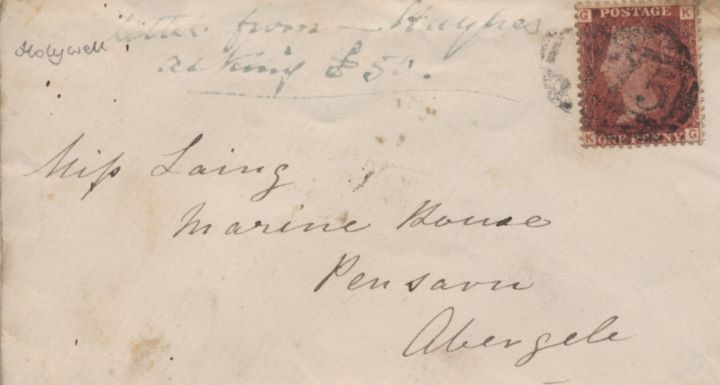 Holywell
letter from — Hughes
asking £50.
G POSTAGE K
K ONE PENNY G
Miss Laing
Marine House
Pensarn
Abergele